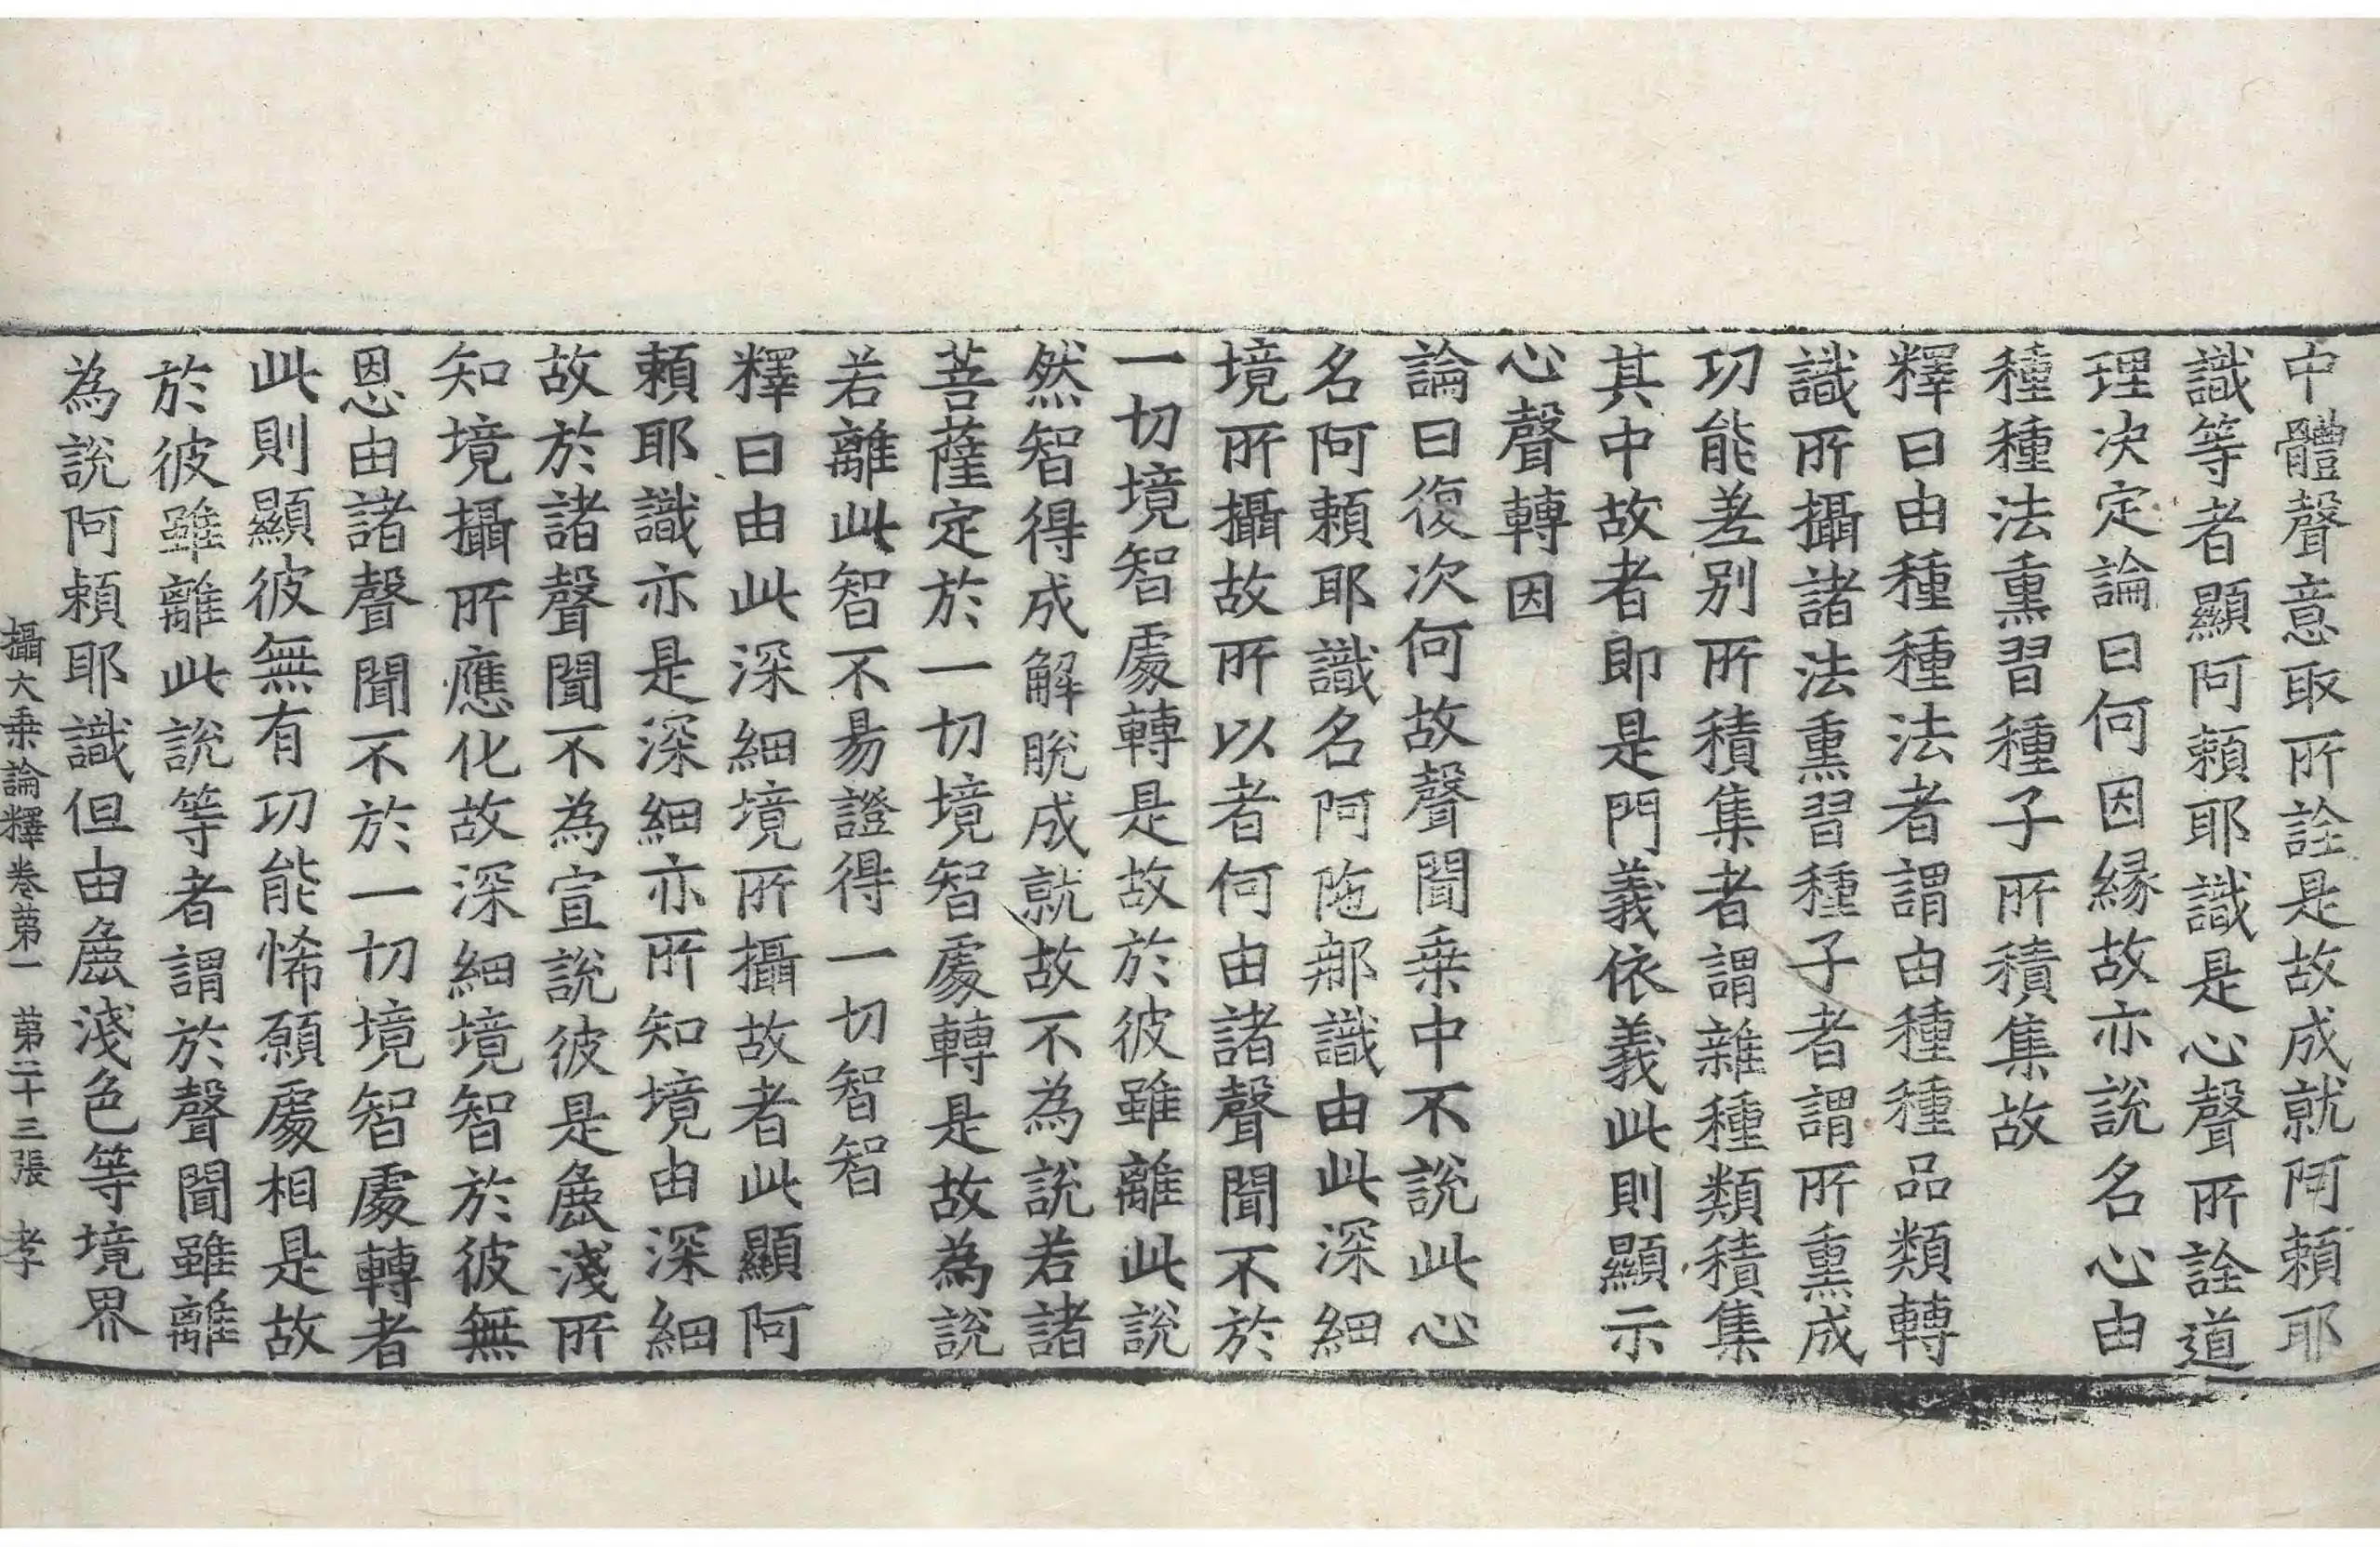 中體聲意取所詮是故成就阿頼耶
識等者顯阿頼耶識是心聲所詮道
理决定論曰何因縁故亦說名心由
種種法熏習種子所積集故
釋曰由種種法者謂由種種品類轉
識所攝諸法熏習種子者謂所熏成
功能差别所積集者謂雜種類積集
其中故者即是門義依義此則顯示
心聲轉因
論曰復次何故聲聞乗中不說此心
名阿頼耶識名阿陁那識由此深細
境所攝故所以者何由諸聲聞不於
一切境智處轉是故於彼雖離此說
然智得成解脫成就故不為說若諸
菩薩定於一切境智處轉是故為說
若離此智不易證得一切智智
釋曰由此深細境所攝故者此顯阿
頼耶識亦是深細亦所知境由深細
故於諸聲聞不為宣說彼是麁淺所
知境攝所應化故深細境智於彼無
恩由諸聲聞不於一切境智處轉者
此則顯彼無有功能悕願處相是故
於彼雖離此說等者謂於聲聞雖離
為說阿頼耶識但由麁淺色等境界
攝大乗論釋卷第一　第二十三張　孝